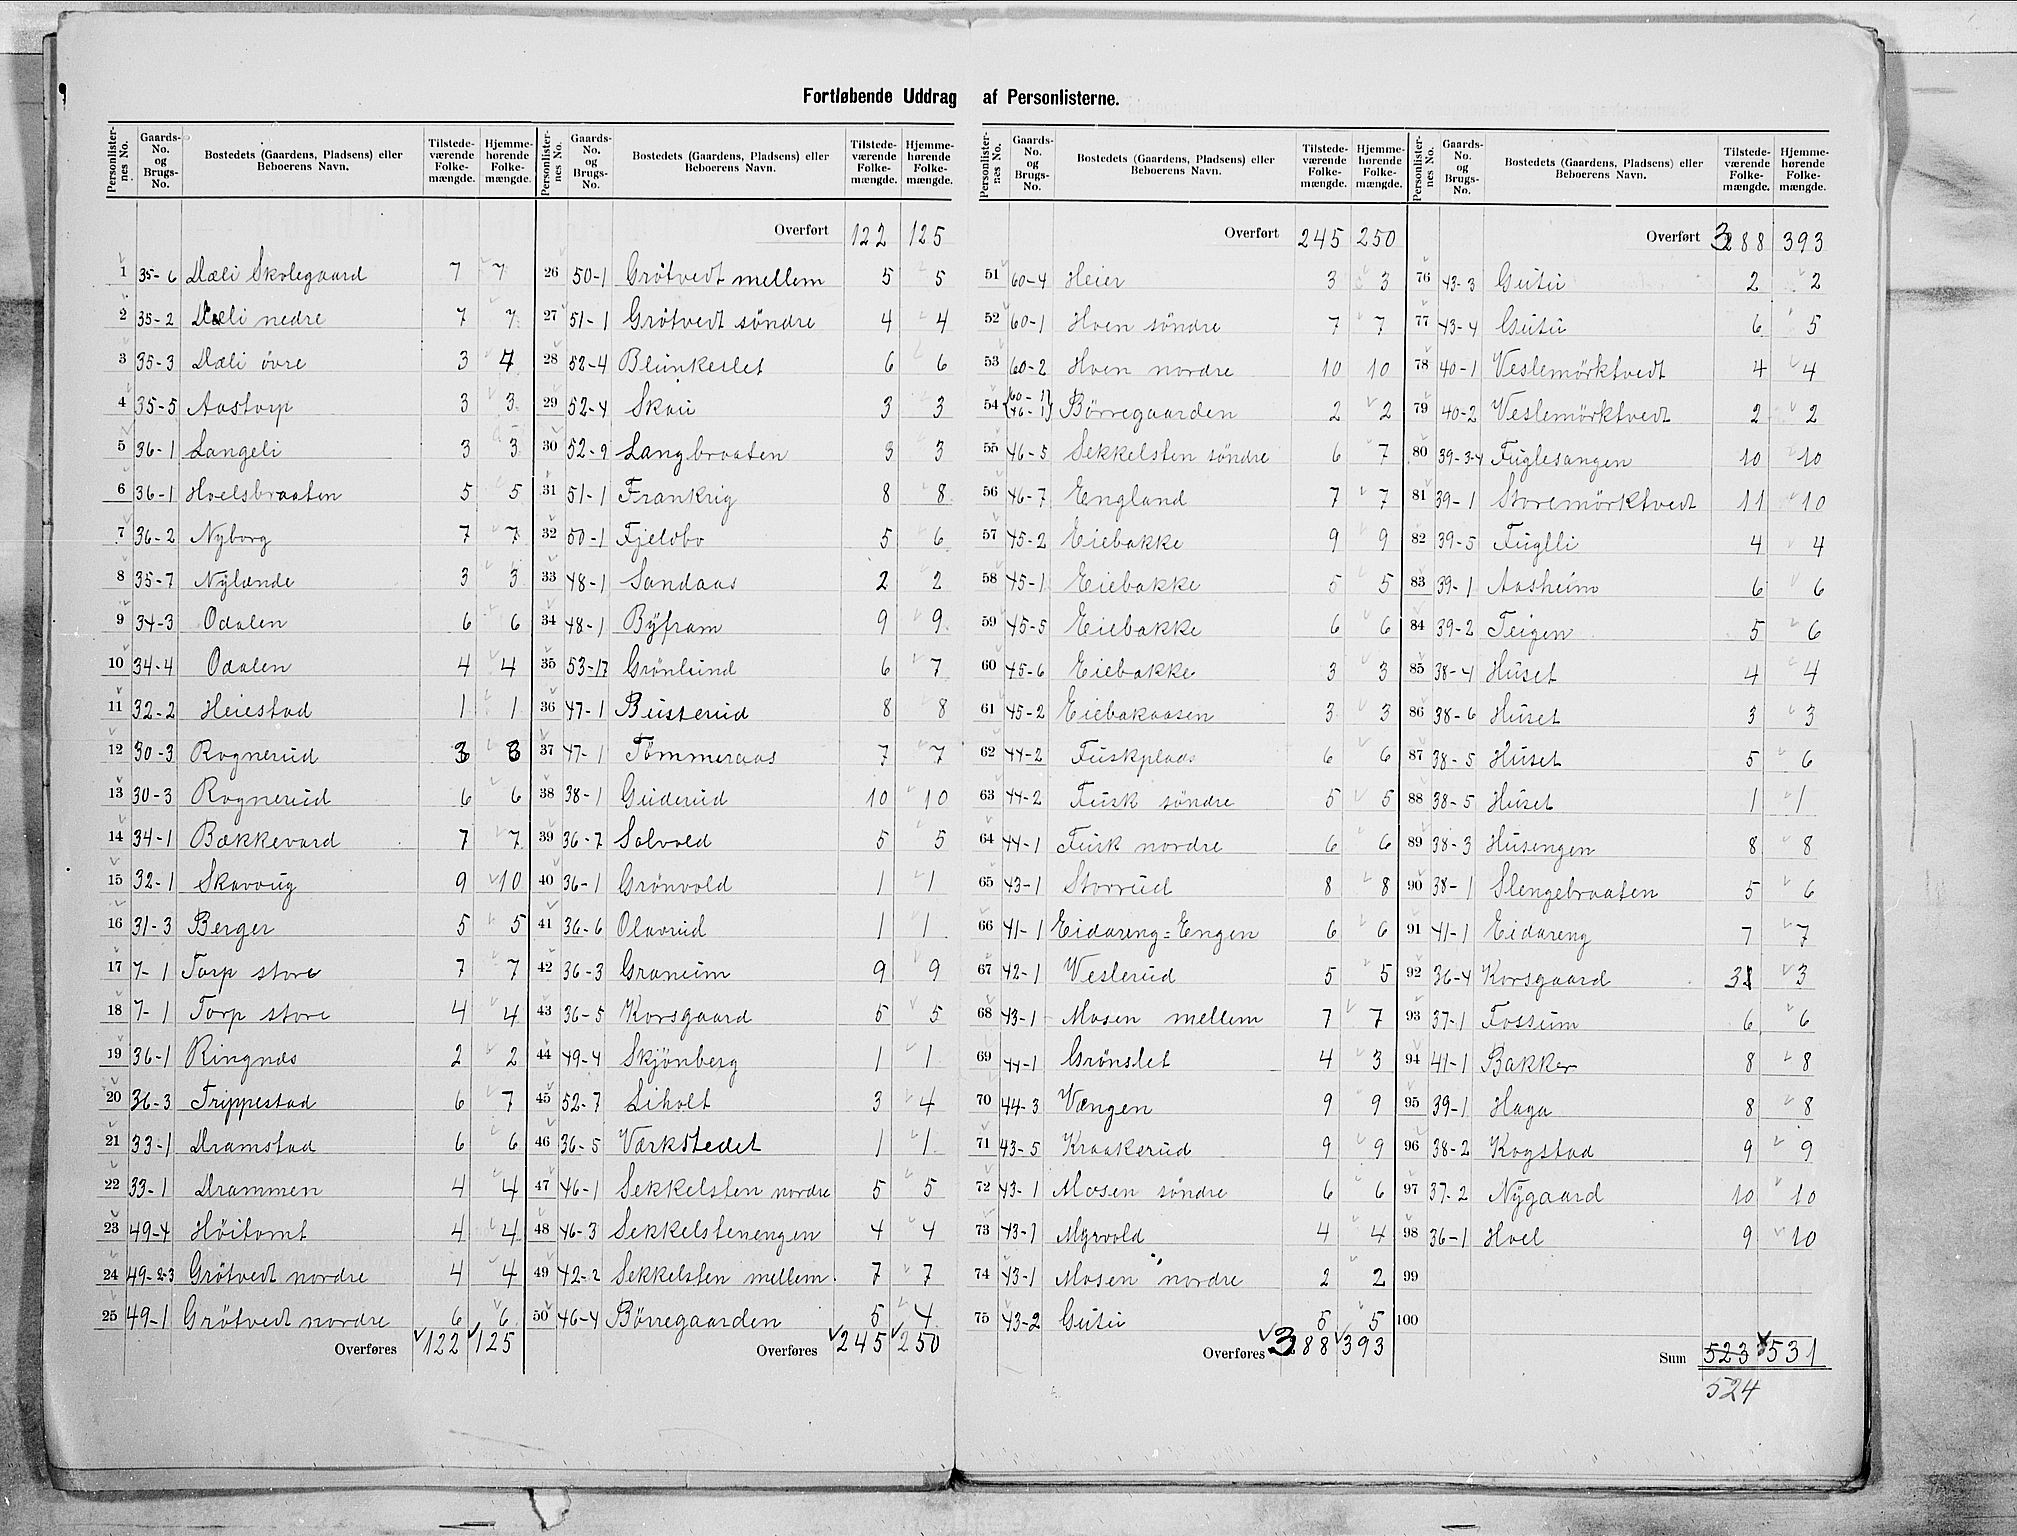 Fortløbende Uddrag af Personlisterne.
Personlisternes No. | Gaards-No. og Brugs-No. | Bostedets (Gaardens, Pladsens) eller Beboerens Navn. | Tilstedeværende Folkemængde. | Hjemmehørende Folkemængde.
1 35-6 Dæli Skolegaard 7 7
2 35-2 Dæli nedre 7 7
3 35-3 Dæli øvre 3 4
4 35-5 Aastorp 3 3
5 36-1 Langeli 3 3
6 36-1 Hoelsbraaten 5 5
7 36-2 Nyborg 7 7
8 35-7 Nylænde 3 3
9 34-3 Odalen 6 6
10 34-4 Odalen 4 4
11 32-2 Heiestad 1 1
12 30-3 Rognerud 3 3
13 30-3 Rognerud 6 6
14 34-1 Bækkevard 7 7
15 32-1 Skavoug 9 10
16 31-3 Berger 5 5
17 7-1 Torp store 7 7
18 7-1 Torp store 4 4
19 36-1 Ringnæs 2 2
20 36-3 Trippestad 6 7
21 33-1 Dramstad 6 6
22 33-1 Drammen 4 4
23 49-4 Høitomt 4 4
24 49-2-3 Grøtvedt nordre 4 4
25 49-1 Grøtvedt nordre 6 6
Overføres 122 125
Personlisternes No. | Gaards-No. og Brugs-No. | Bostedets (Gaardens, Pladsens) eller Beboerens Navn. | Tilstedeværende Folkemængde. | Hjemmehørende Folkemængde.
Overført 122 125
26 50-1 Grøtvedt mellem 5 5
27 51-1 Grøtvedt søndre 4 4
28 52-4 Blunkeslet 6 6
29 52-4 Skau 3 3
30 52-9 Langbraaten 3 3
31 51-1 Frankrig 8 8
32 50-1 Fjeldbo 5 6
33 48-1 Sandaas 2 2
34 48-1 Byfram 9 9
35 53-17 Grønlund 6 7
36 47-1 Busterud 8 8
37 47-1 Tømmeraas 7 7
38 38-1 Guderud 10 10
39 36-7 Solvold 5 5
40 36-1 Grønvold 1 1
41 36-6 Olavrud 1 1
42 36-3 Graneim 9 9
43 36-5 Korsgaard 5 5
44 49-4 Skjønberg 1 1
45 52-7 Liholt 3 4
46 36-5 Værkstedet 1 1
47 46-1 Sekkelsten nordre 5 5
48 46-3 Sekkelstenengen 4 4
49 42-2 Sekkelsten mellem 7 7
50 46-4 Børregaarden 5 4
Overføres 245 250
Personlisternes No. | Gaards-No. og Brugs-No. | Bostedets (Gaardens, Pladsens) eller Beboerens Navn. | Tilstedeværende Folkemængde. | Hjemmehørende Folkemængde.
Overført 245 250
51 60-4 Heier 3 3
52 60-1 Hven søndre 7 7
53 60-2 Hven nordre 10 10
54 {60-1 46-1} Børregaarden 2 2
55 46-5 Sekkelsten søndre 6 7
56 46-7 England 7 7
57 45-2 Eiebakke 9 9
58 45-1 Eiebakke 5 5
59 45-5 Eiebakke 6 6
60 45-6 Eiebakke 3 3
61 45-2 Eiebakaasen 3 3
62 44-2 Fuskplads 6 6
63 44-2 Fusk søndre 5 5
64 44-1 Fusk nordre 6 6
65 43-1 Storrud 8 8
66 41-1 Eidareng=Engen 6 6
67 42-1 Veslerud 5 5
68 43-1 Mosen mellem 7 7
69 44-1 Grønslet 4 3
70 44-3 Vængen 9 9
71 43-5 Kraakerud 9 9
72 43-1 Mosen søndre 6 6
73 43-1 Myrvold 4 4
74 43-1 Mosen nordre 2 2
75 43-2 Gutu 5 5
Overføres 388 393
Personlisternes No. | Gaards-No. og Brugs-No. | Bostedets (Gaardens, Pladsens) eller Beboerens Navn. | Tilstedeværende Folkemængde. | Hjemmehørende Folkemængde.
Overført 388 393
76 43-3 Gutu 2 2
77 43-4 Gutu 6 5
78 40-1 Veslemørktvedt 4 4
79 40-2 Veslemørktvedt 2 2
80 39-3-4 Fuglesangen 10 10
81 39-1 Storemørktvedt 11 10
82 39-5 Fuglli 4 4
83 39-1 Aasheim 6 6
84 39-2 Teigen 5 6
85 38-4 Huset 4 4
86 38-6 Huset 3 3
87 38-5 Huset 5 6
88 38-5 Huset 1 1
89 38-3 Husengen 8 8
90 38-1 Slengebraaten 5 6
91 41-1 Eidareng 7 7
92 36-4 Korsgaard 3 3
93 37-1 Fossum 6 6
94 41-1 Bakker 8 8
95 39-1 Haga 8 8
96 38-2 Kogstad 9 9
97 37-2 Nygaard 10 10
98 36-1 Hoel 9 10
99
100
Sum 523 531
524